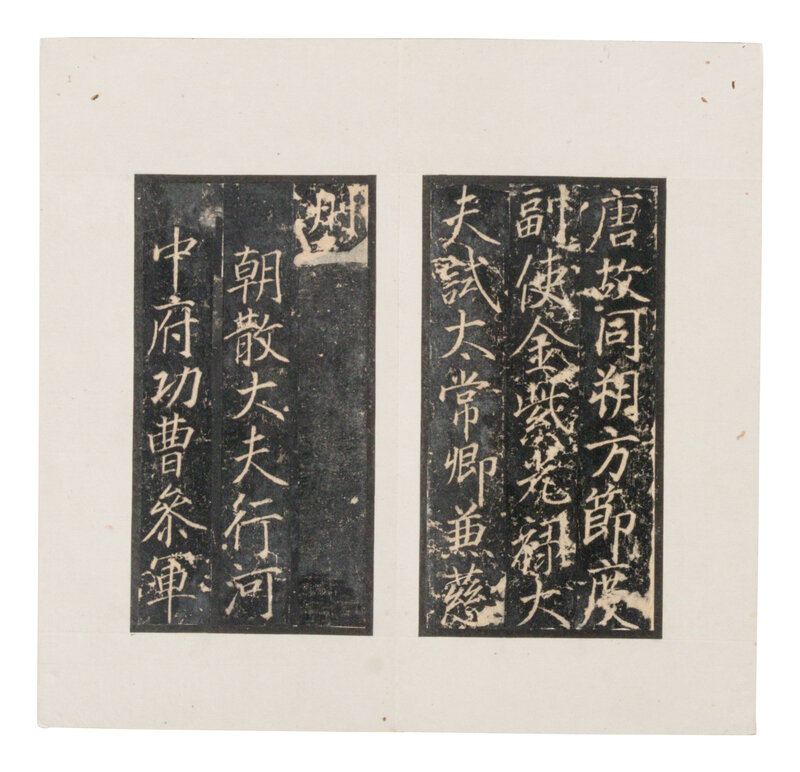 唐故同朔方節度
副使金紫光祿大
夫試太常卿兼慈
州
朝散大夫行河
中府功曹參軍